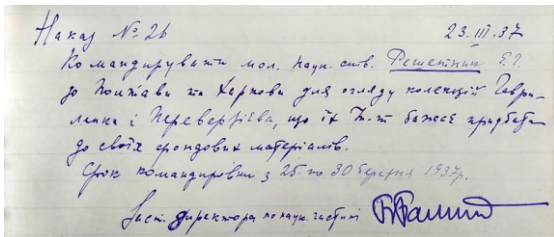 Наказ № 26 23.III.37
Командирувати мол. наук. спів. Решетник Є.
до Полтави та Харкова для огляду колекції Гаври-
ленка і Переверзієва, що їх Ін-т бажає придбати
до своїх фондових матеріалів.
Срок командировки з 25 по 30 березня 1937р.
Заст. директора по наук. частині